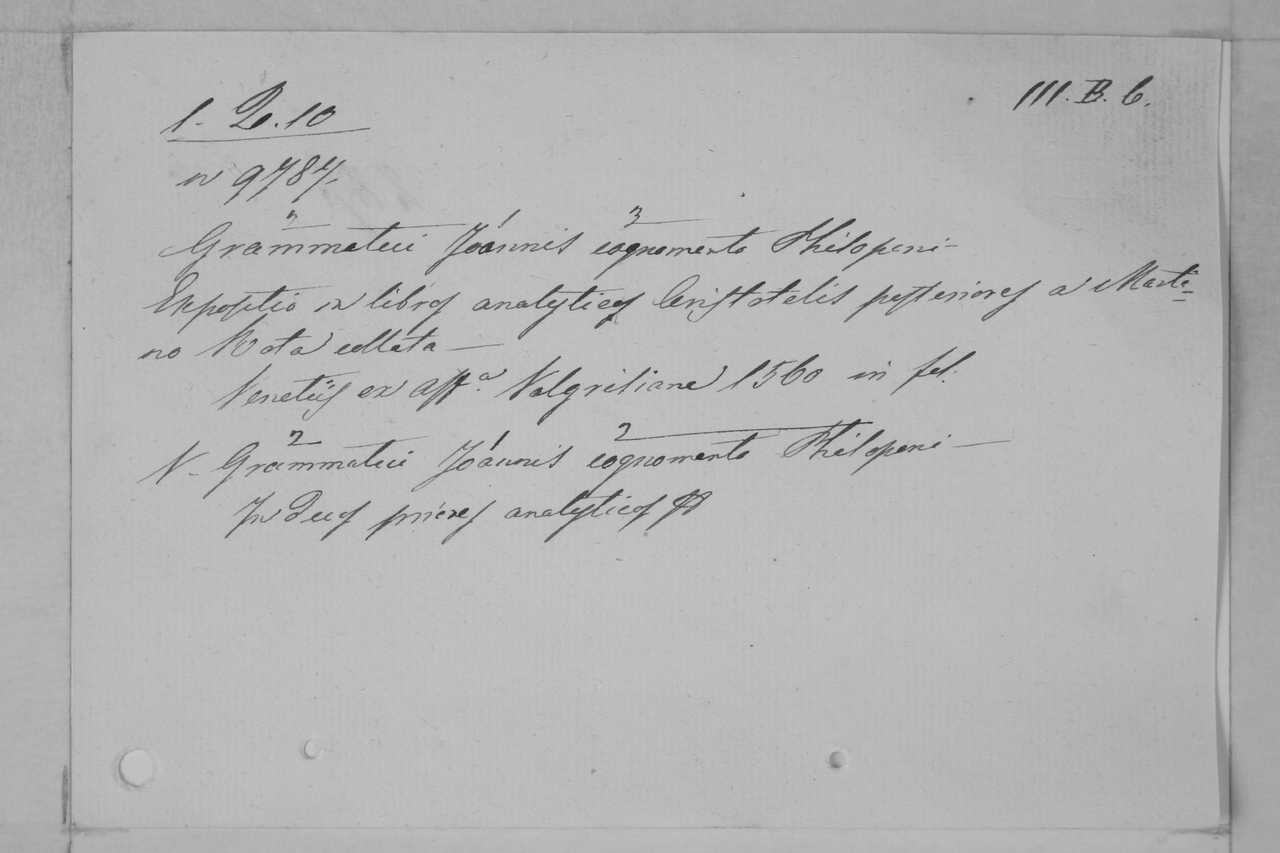 III. B. 6.
1- Q. 10
n 9787.
2 1 3
Grammatici Joannis cognomento Philoponi-
Expositio in libros analyticos Aristotelis posteriores a Marti=
no Rota collata-
Venetiis ex offa Valgrisiana 1560 in fol.
2 1 2
V- Grammatici Joannis cognomento Philoponi-
In duos priores analyticos